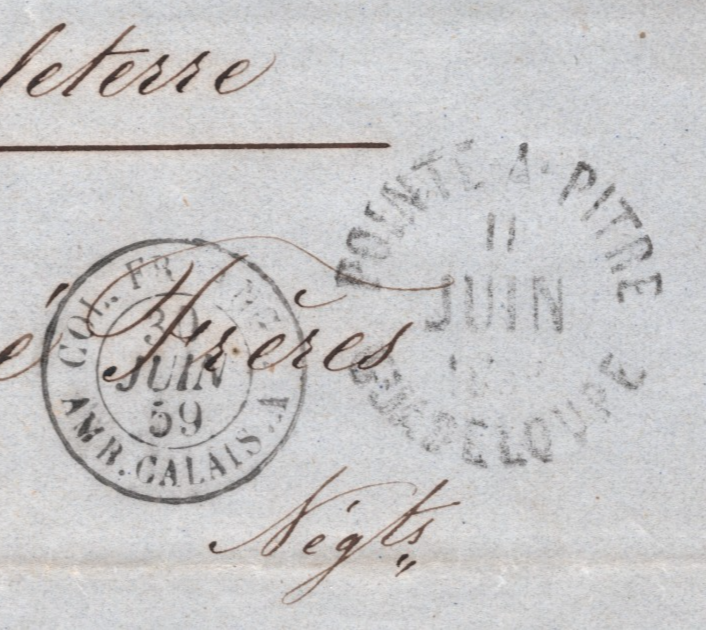 leterre
POINTE A PITRE
11
JUIN
GUADELOUPE
COL. FR. ANG.
30
JUIN
59
AMB. CALAIS. A
é Frères
Négts